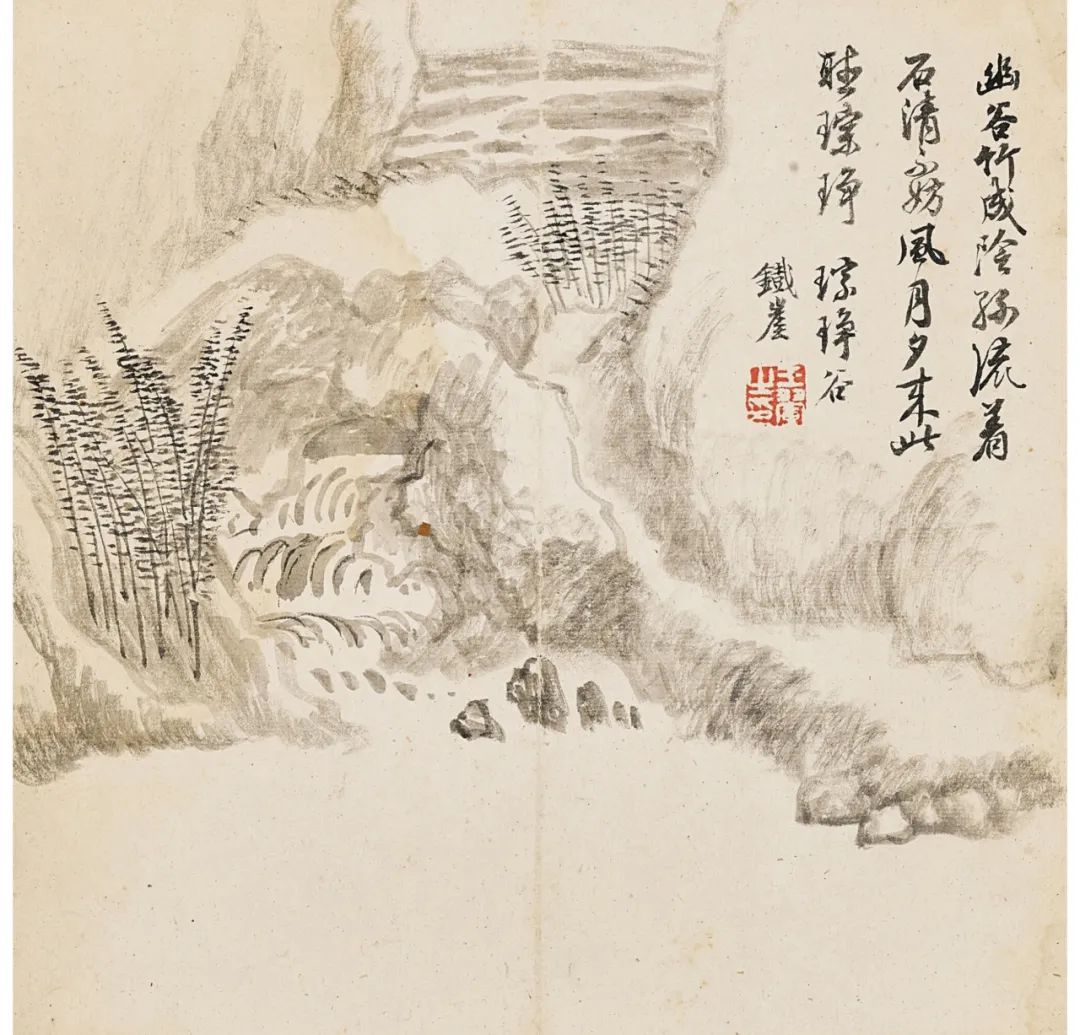 幽谷竹成陰流着
石清不妨風月夕来此
聴琮琤 琮琤谷
鐵崖